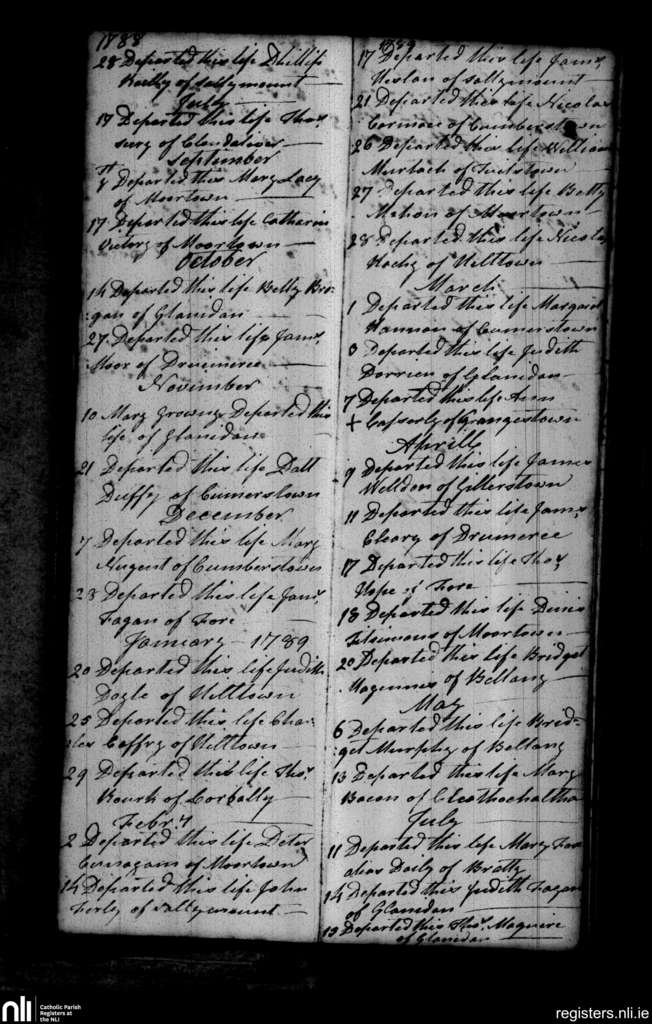 1788
28 Departed this life Phillip
Reilly of Sallymount
July
17 Departed this life Thos.
of Clondaliver
September
Departed this Mary Lacy
of Moortown
17 Departed this life Catharin
Victory of Moortown
October
14 Departed this life Betty Bro-
:gan of Glanidan
27 Departed this life Jams.
Moor of Drumeree
November
10 Mary Growney Departed this
life of Glanidan
21 Departed this life Patt
Duffy of Cumerstown
December
7 Departed this life Mary
Nugent of Cumberstown
23 Departed this life Jams.
Fagan of Fore
January 1789
20 Departed this life Judith
Doyle of Hilltown
25 Departed this life Cha:
:les Caffry of Hilltown
29 Departed this life Thos.
Bourk of Corbally
Febry
2 Departed this life Peter
of Moortown
14 Departed this life John
of Sallymount
1789
17 Departed this life Jams.
of Sallymount
21 Departed this life Nicolas
Cormick of Cumberstown
26 Departed this life William
Murtach of
27 Departed this life Betty
Mahon of Moortown
28 Departed this life Nicolas
of Hilltown
March
1 Departed this life Margaret
Hannon of Cumerstown
3 Departed this life Judith
of Glanidan
7 Departed this life Ann
+ Casserly of Grangestown
Aprill
9 Departed this life James
Welldon of Gillerstown
11 Departed this life Jams.
Cleary of Drumeree
17 Departed this life Thos.
Hope of Fore
18 Departed this life Dinis
Fitsimons of Moortown
20 Departed this life Bridget
Magennis of Bellany
May
6 Departed this life Brid-
get Murphy of Bellany
13 Departed this life Mary
Bacon of
July
11 Departed this life Mary
alias Daily of Bratty
14 Departed this Judith Fagan
of Glanidan
19 Departed this Thos. Maguire
of Glanidan
nli
Catholic Parish
Registers at
the NLI
registers.nli.ie